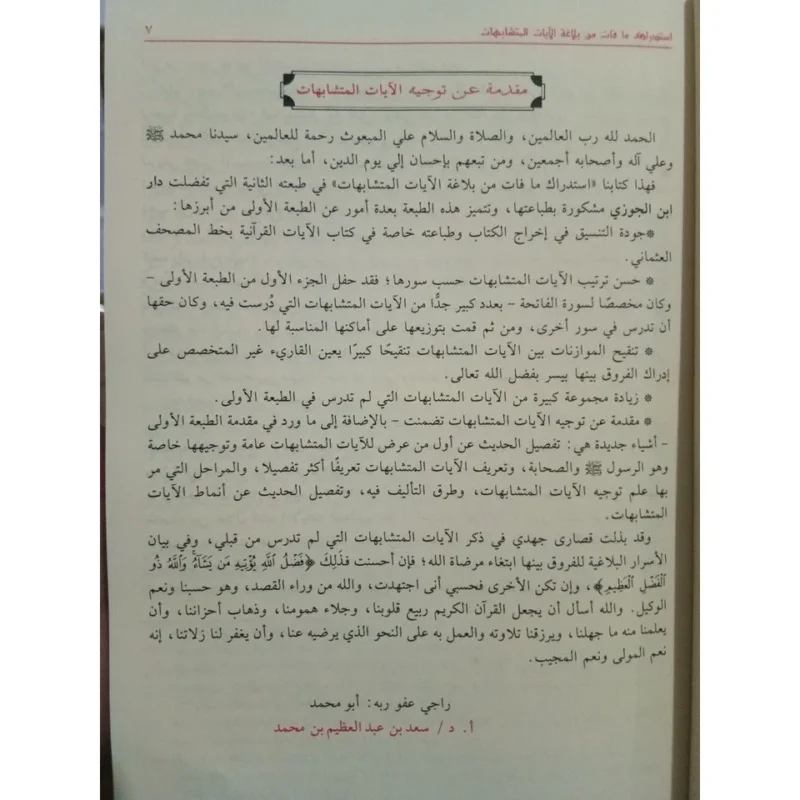 استدراك ما فات من بلاغة الآيات المتشابهات ٧
مقدمة عن توجيه الآيات المتشابهات
الحمد لله رب العالمين، والصلاة والسلام علي المبعوث رحمة للعالمين، سيدنا محمد ﷺ
وعلي آله وأصحابه أجمعين، ومن تبعهم بإحسان إلي يوم الدين، أما بعد:
فهذا كتابنا «استدراك ما فات من بلاغة الآيات المتشابهات» في طبعته الثانية التي تفضلت دار
ابن الجوزي مشكورة بطباعتها، وتتميز هذه الطبعة بعدة أمور عن الطبعة الأولى من أبرزها:
*جودة التنسيق في إخراج الكتاب وطباعته خاصة في كتاب الآيات القرآنية بخط المصحف
العثماني.
* حسن ترتيب الآيات المتشابهات حسب سورها؛ فقد حفل الجزء الأول من الطبعة الأولى –
وكان مخصصًا لسورة الفاتحة – بعدد كبير جدًّا من الآيات المتشابهات التي دُرست فيه، وكان حقها
أن تدرس في سور أخرى، ومن ثم قمت بتوزيعها على أماكنها المناسبة لها.
* تنقيح الموازنات بين الآيات المتشابهات تنقيحًا كبيرًا يعين القاريء غير المتخصص على
إدراك الفروق بينها بيسر بفضل الله تعالى.
* زيادة مجموعة كبيرة من الآيات المتشابهات التي لم تدرس في الطبعة الأولى.
* مقدمة عن توجيه الآيات المتشابهات تضمنت – بالإضافة إلى ما ورد في مقدمة الطبعة الأولى
– أشياء جديدة هي: تفصيل الحديث عن أول من عرض للآيات المتشابهات عامة وتوجيهها خاصة
وهو الرسول ﷺ والصحابة، وتعريف الآيات المتشابهات تعريفًا أكثر تفصيلا، والمراحل التي مر
بها علم توجيه الآيات المتشابهات، وطرق التأليف فيه، وتفصيل الحديث عن أنماط الآيات
المتشابهات.
وقد بذلت قصارى جهدي في ذكر الآيات المتشابهات التي لم تدرس من قبلي، وفي بيان
الأسرار البلاغية للفروق بينها ابتغاء مرضاة الله؛ فإن أحسنت فذلك ﴿فَضْلُ ٱللَّهِ يُؤْتِيهِ مَن يَشَآءُ وَٱللَّهُ ذُو
ٱلْفَضْلِ ٱلْعَظِيمِ﴾، وإن تكن الأخرى فحسبي أنى اجتهدت، والله من وراء القصد، وهو حسبنا ونعم
الوكيل. والله أسأل أن يجعل القرآن الكريم ربيع قلوبنا، وجلاء همومنا، وذهاب أحزاننا، وأن
يعلمنا منه ما جهلنا، ويرزقنا تلاوته والعمل به على النحو الذي يرضيه عنا، وأن يغفر لنا زلاتنا، إنه
نعم المولى ونعم المجيب.
راجي عفو ربه: أبو محمد
أ. د/ سعد بن عبد العظيم بن محمد